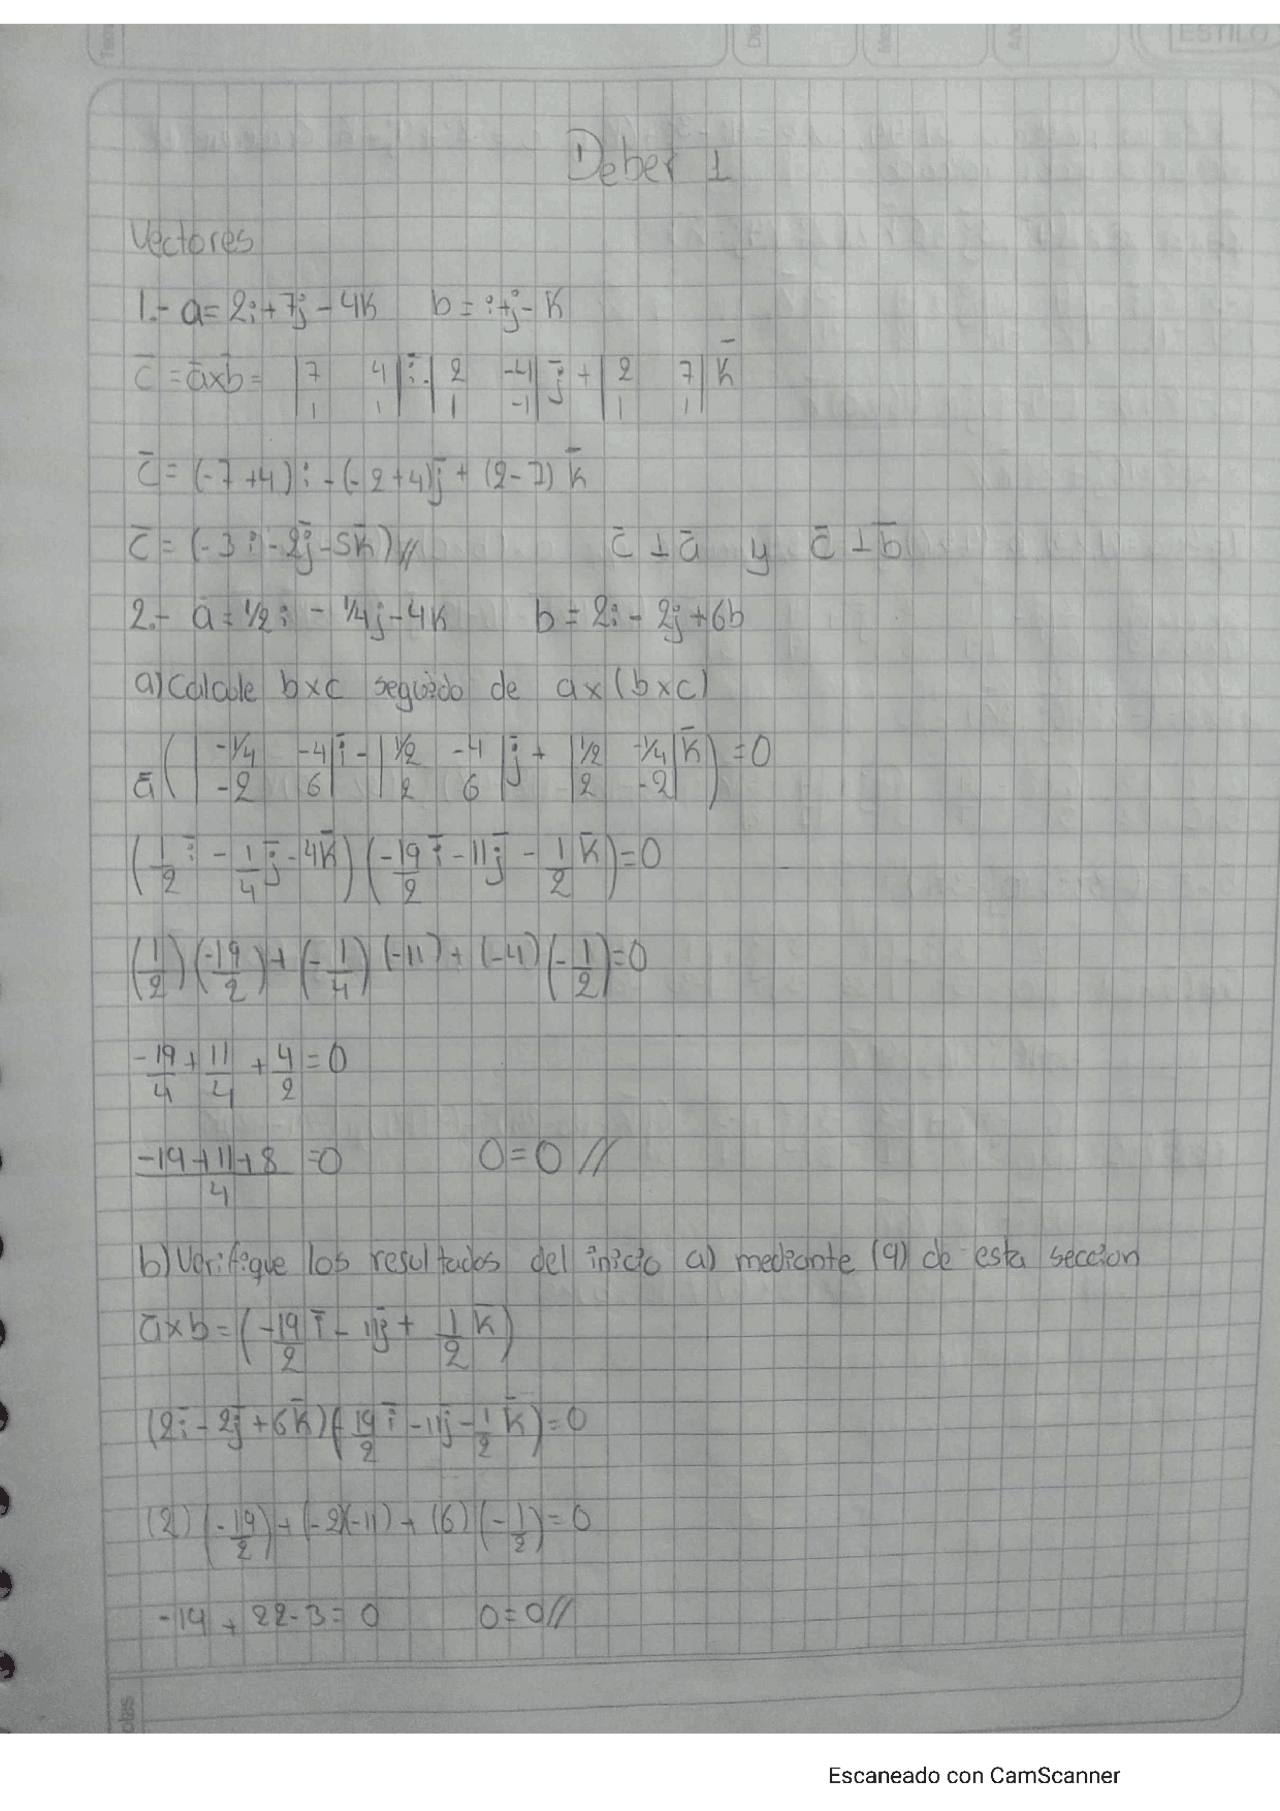 ESTILO
Deber 1
Vectores
1.- a = 2i + 7j - 4k b = i + j - k
c̄ = āxb̄ = |7 4| ī - |2 -4| j̄ + |2 7| k̄
1 1 1 -1 1 1
c̄ = (-7+4)i - (-2+4)j̄ + (2-7) k̄
c̄ = (-3i - 2j̄ - 5k̄)// c̄ ⊥ ā y c̄ ⊥ b̄
2.- ā = 1/2 i - 1/4 j - 4k b = 2i - 2j + 6b
a) Calcule bxc seguido de ax(bxc)
ā ( |-1/4 -4| ī - |1/2 -4| j̄ + |1/2 -1/4| k̄ ) = 0
-2 6 2 6 2 -2
(1/2 ī - 1/4 j̄ - 4k̄) (-19/2 ī - 11j̄ - 1/2 k̄) = 0
(1/2) (-19/2) + (-1/4) (-11) + (-4) (-1/2) = 0
-19/4 + 11/4 + 4/2 = 0
(-19+11+8)/4 = 0 0 = 0 //
b) Verifique los resultados del inicio a) mediante (9) de esta seccion
āxb = (-19/2 ī - 11j + 1/2 k̄)
(2ī - 2j̄ + 6k̄) (-19/2 ī - 11j - 1/2 k̄) = 0
(2) (-19/2) + (-2)(-11) + (6) (-1/2) = 0
-19 + 22 - 3 = 0 0 = 0//
Escaneado con CamScanner